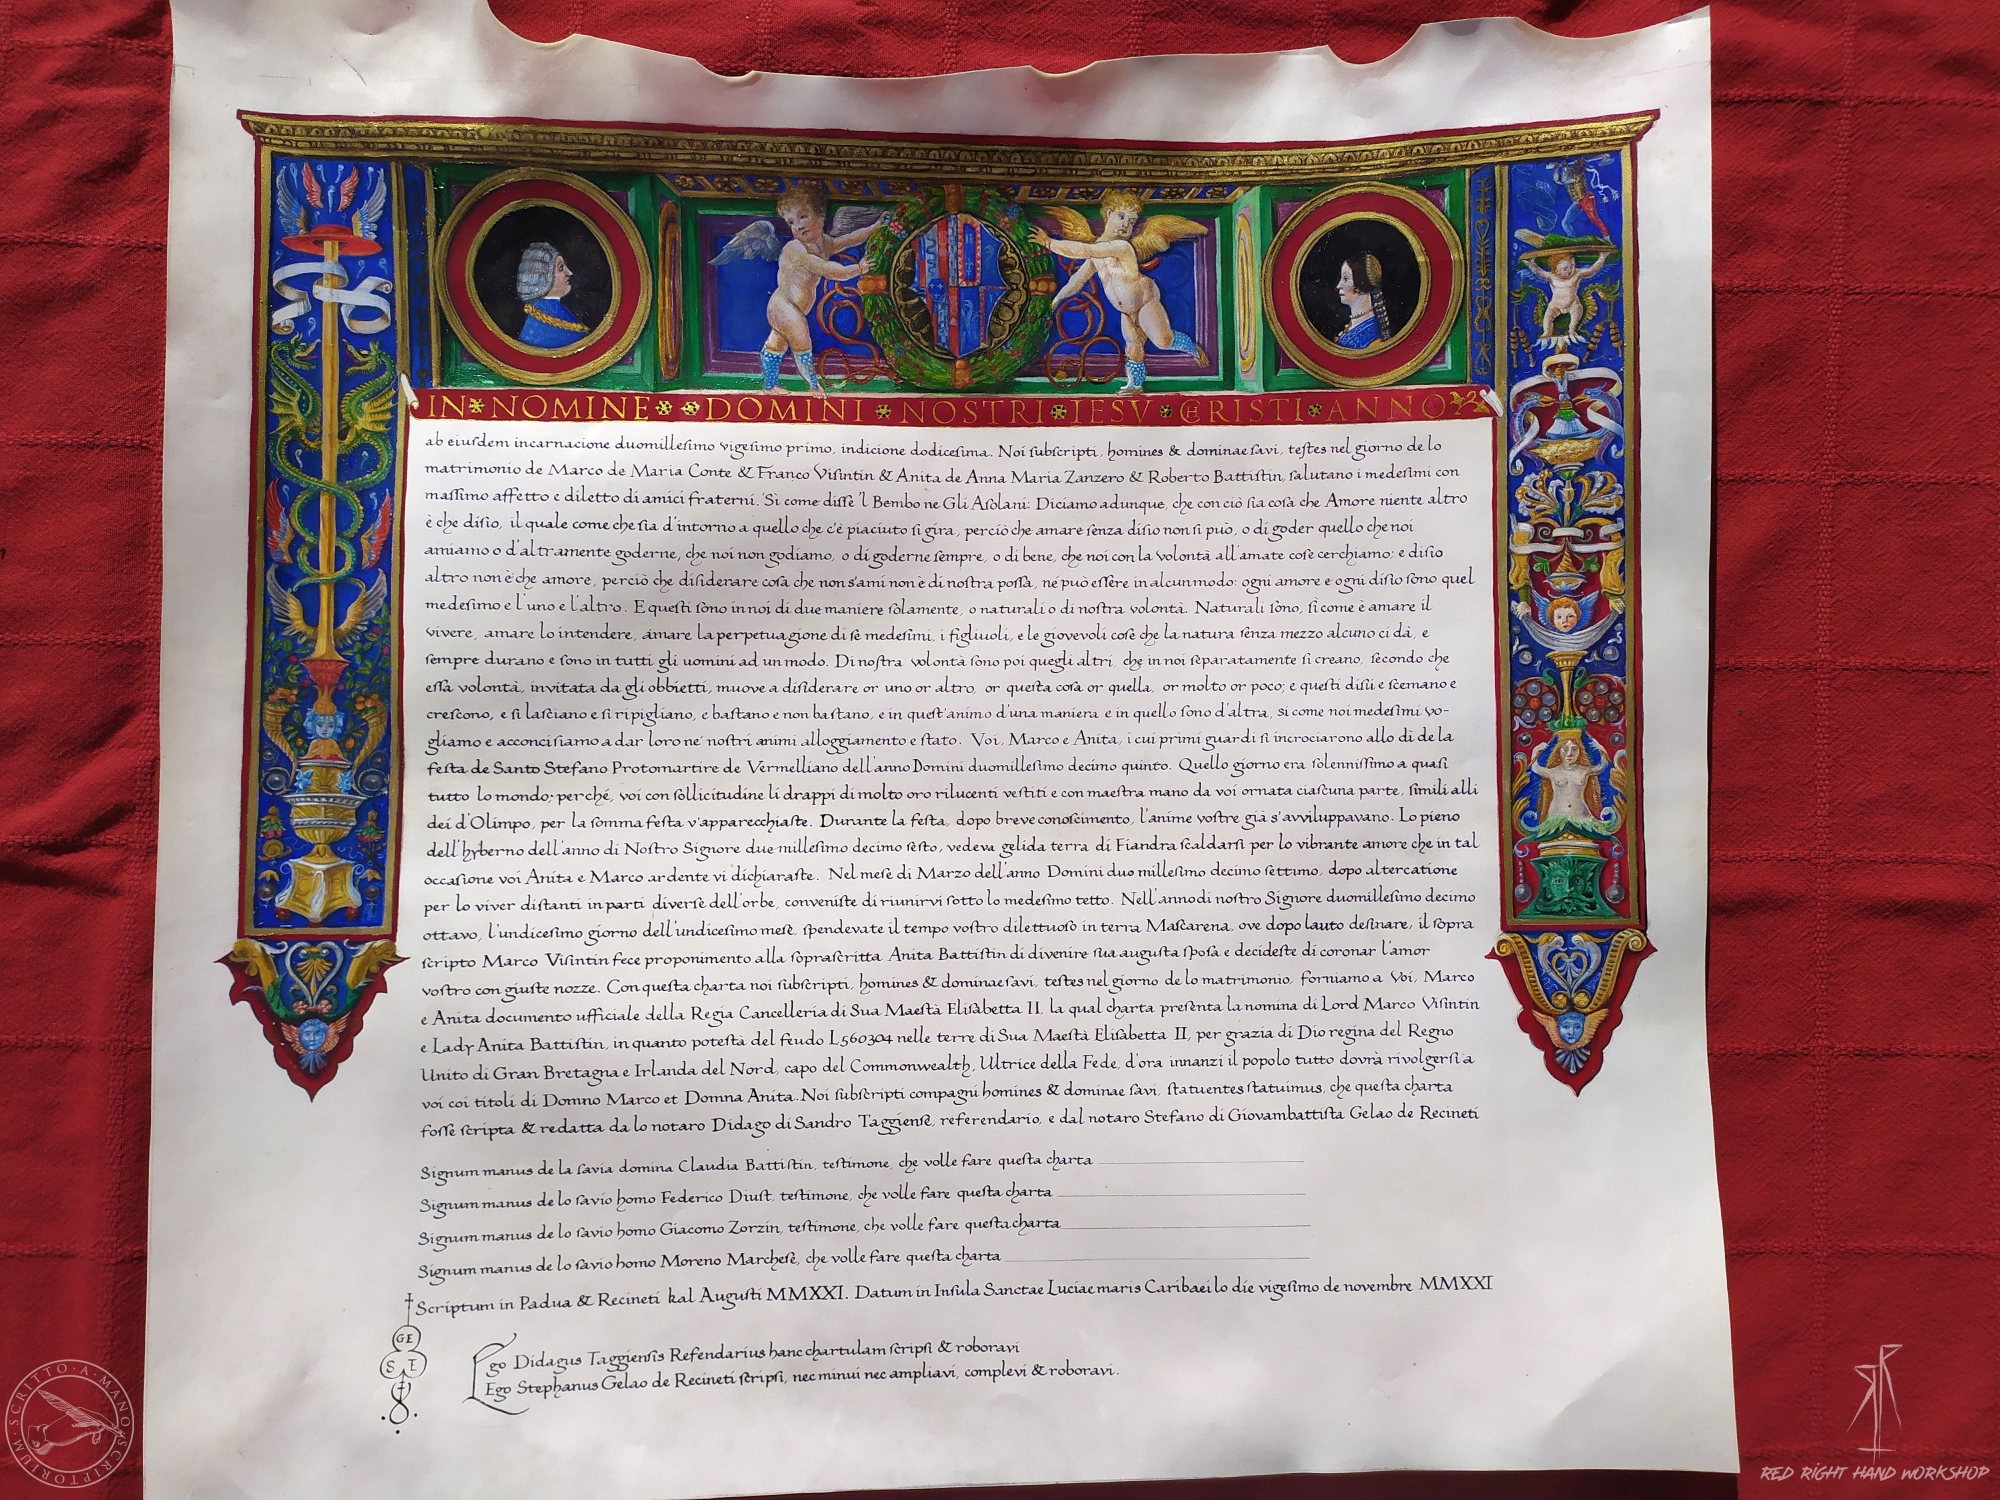 IN NOMINE DOMINI NOSTRI IESV CHRISTI ANNO
ab eiusdem incarnacione duomillesimo vigesimo primo, indicione dodicesima. Noi subscripti, homines & dominae savi, testes nel giorno de lo
matrimonio de Marco de Maria Conte & Franco Visintin & Anita de Anna Maria Zanzero & Roberto Battistin, salutano i medesimi con
massimo affetto e diletto di amici fraterni. Sì come disse 'l Bembo ne Gli Asolani: Diciamo adunque, che con ciò sia cosa che Amore niente altro
è che disio, il quale come che sia d'intorno a quello che c'è piaciuto si gira, perciò che amare senza disio non si può, o di goder quello che noi
amiamo o d'altramente goderne, che noi non godiamo, o di goderne sempre, o di bene, che noi con la volontà all'amate cose cerchiamo; e disio
altro non è che amore, perciò che disiderare cosa che non s'ami non è di nostra possa, né può essere in alcun modo: ogni amore e ogni disio sono quel
medesimo e l'uno e l'altro. E questi sono in noi di due maniere solamente, o naturali o di nostra volontà. Naturali sono, sì come è amare il
vivere, amare lo intendere, amare la perpetuagione di sè medesimi, i figliuoli, e le giovevoli cose che la natura senza mezzo alcuno ci dà, e
sempre durano e sono in tutti gli uomini ad un modo. Di nostra volontà sono poi quegli altri, che in noi separatamente si creano, secondo che
essa volontà, invitata da gli obbietti, muove a disiderare or uno or altro, or questa cosa or quella, or molto or poco; e questi disii e scemano e
crescono, e si lasciano e si ripigliano, e bastano e non bastano, e in quest'animo d'una maniera e in quello sono d'altra, si come noi medesimi vo-
gliamo e acconci siamo a dar loro ne' nostri animi alloggiamento e stato. Voi, Marco e Anita, i cui primi guardi si incrociarono allo dì de la
festa de Santo Stefano Protomartire de Vermelliano dell'anno Domini duomillesimo decimo quinto. Quello giorno era solennissimo a quasi
tutto lo mondo; perché, voi con sollicitudine li drappi di molto oro rilucenti vestiti e con maestra mano da voi ornata ciascuna parte, simili alli
dei d'Olimpo, per la somma festa v'apparecchiaste. Durante la festa, dopo breve conoscimento, l'anime vostre già s'avviluppavano. Lo pieno
dell'hyberno dell'anno di Nostro Signore due millesimo decimo sesto, vedeva gelida terra di Fiandra scaldarsi per lo vibrante amore che in tal
occasione voi Anita e Marco ardente vi dichiaraste. Nel mese di Marzo dell'anno Domini duo millesimo decimo settimo, dopo altercatione
per lo viver distanti in parti diverse dell'orbe, conveniste di riunirvi sotto lo medesimo tetto. Nell'anno di nostro Signore duomillesimo decimo
ottavo, l'undicesimo giorno dell'undicesimo mese, spendevate il tempo vostro dilettuoso in terra Mascarena, ove dopo lauto desinare, il sopra
scripto Marco Visintin fece proponimento alla soprascritta Anita Battistin di divenire sua augusta sposa e decideste di coronar l'amor
vostro con giuste nozze. Con questa charta noi subscripti, homines & dominae savi, testes nel giorno de lo matrimonio, forniamo a Voi, Marco
e Anita documento ufficiale della Regia Cancelleria di Sua Maestà Elisabetta II, la qual charta presenta la nomina di Lord Marco Visintin
e Lady Anita Battistin, in quanto potestà del feudo L560304 nelle terre di Sua Maestà Elisabetta II, per grazia di Dio regina del Regno
Unito di Gran Bretagna e Irlanda del Nord, capo del Commonwealth, Ultrice della Fede, d'ora innanzi il popolo tutto dovrà rivolgersi a
voi coi titoli di Domno Marco et Domna Anita. Noi subscripti compagni homines & dominae savi, statuentes statuimus, che questa charta
fosse scripta & redatta da lo notaro Didago di Sandro Taggiense, referendario, e dal notaro Stefano di Giovambattista Gelao de Recineti
Signum manus de la savia domina Claudia Battistin, testimone, che volle fare questa charta
Signum manus de lo savio homo Federico Diust, testimone, che volle fare questa charta
Signum manus de lo savio homo Giacomo Zorzin, testimone, che volle fare questa charta
Signum manus de lo savio homo Moreno Marchese, che volle fare questa charta
Scriptum in Padua & Recineti kal Augusti MMXXI. Datum in Insula Sanctae Luciae maris Caribaei lo die vigesimo de novembre MMXXI
GE
S T
Ego Didagus Taggiensis Refendarius hanc chartulam scripsi & roboravi
Ego Stephanus Gelao de Recineti scripsi, nec minui nec ampliavi, complevi & roboravi.
SCRITTO A MANO SCRIPTORIUM
RED RIGHT HAND WORKSHOP